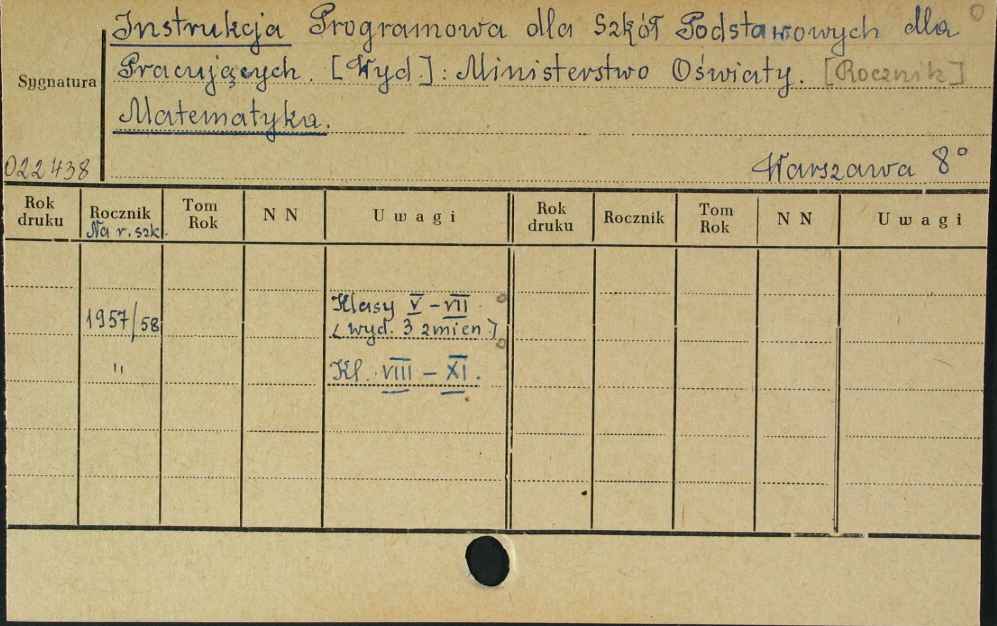 Instrukcja Programowa dla Szkół Podstawowych dla
Pracujących. [Wyd.]: Ministerstwo Oświaty. [Rocznik]
Sygnatura
Matematyka.
022438
Warszawa 8°
Rok druku Rocznik Tom Rok N N Uwagi Rok druku Rocznik Tom Rok N N Uwagi
Na r. szk.
1957/58 Klasy V – VII
(wyd. 3 zmien.)
" Kl. VIII – XI.